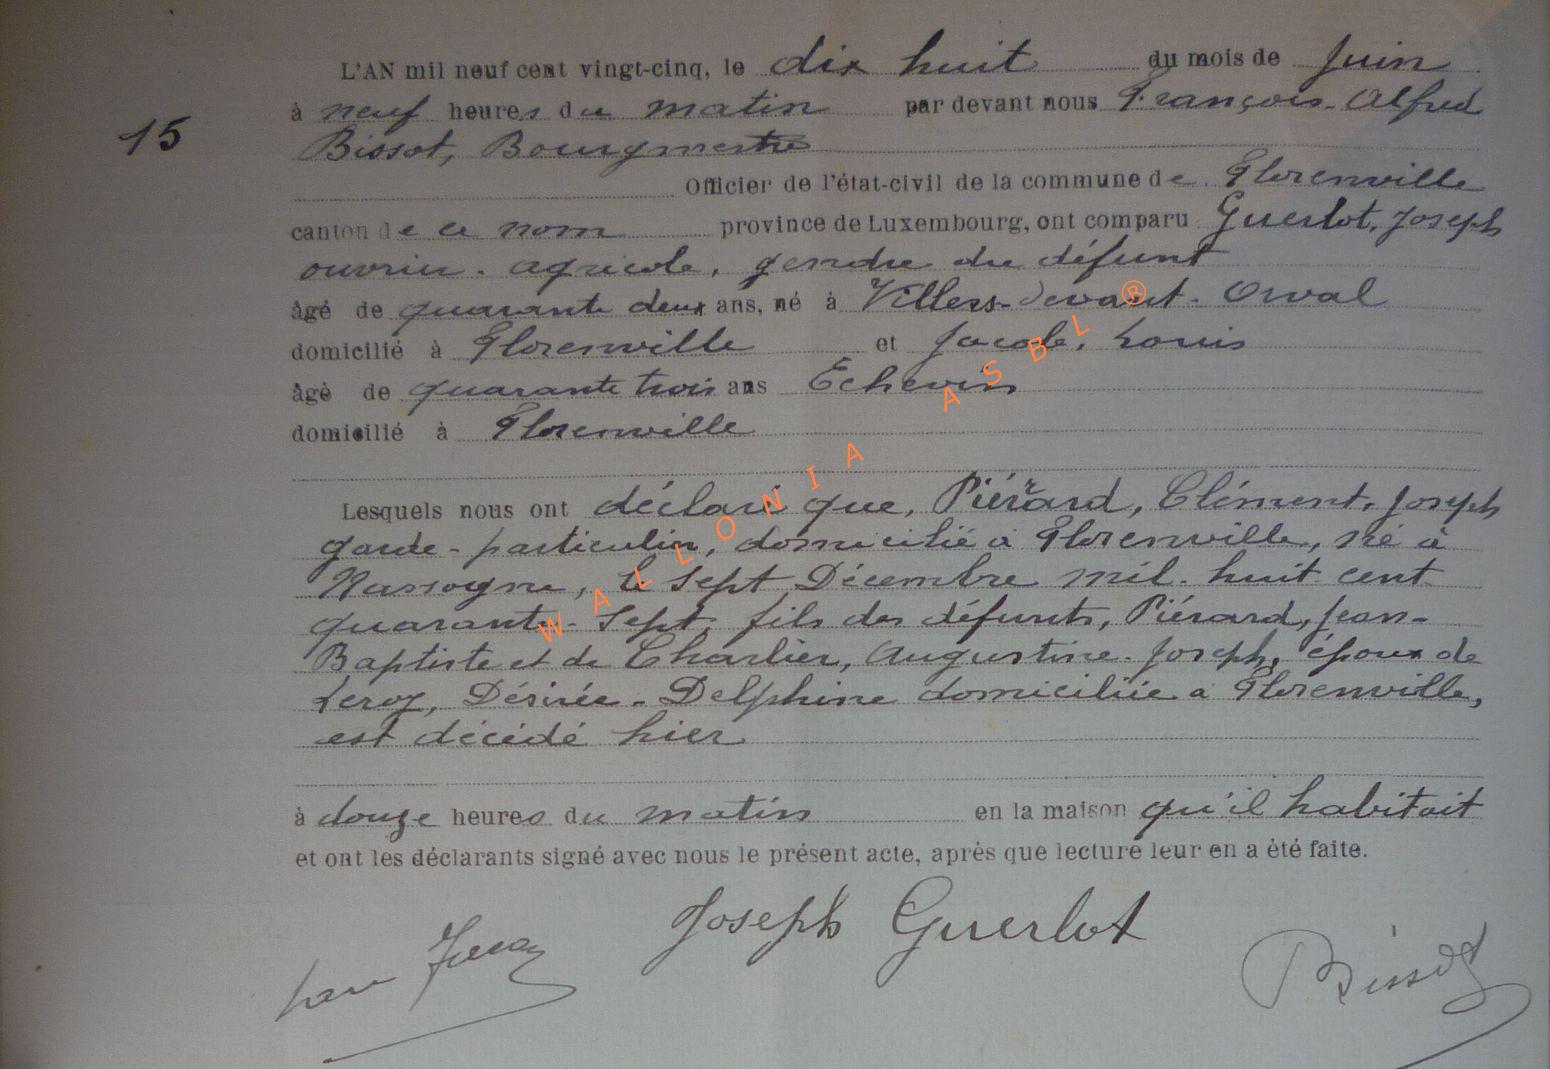 L'AN mil neuf cent vingt-cinq, le dix huit du mois de Juin
à neuf heures du matin par devant nous François-Alfred
15
Bissot, Bourgmestre
Officier de l'état-civil de la commune de Florenville
canton de ce nom province de Luxembourg, ont comparu Guerlot, Joseph
ouvrier-agricole, gendre du défunt
âgé de quarante deux ans, né à Villers-devant-Orval
domicilié à Florenville et Jacob, Louis
âgé de quarante trois ans Echevin
domicilié à Florenville
Lesquels nous ont déclaré que, Piérard, Clément, Joseph
garde-particulier, domicilié à Florenville, né à
Nassogne, le sept Décembre mil-huit cent
quarante-sept, fils des défunts, Piérard, Jean-
Baptiste et de Charlier, Augustine-Joseph, époux de
Leroy, Désirée-Delphine domiciliée à Florenville,
est décédé hier
à douze heures du matin en la maison qu'il habitait
et ont les déclarants signé avec nous le présent acte, après que lecture leur en a été faite.
Joseph Guerlot
Bissot
WALLONIA ASBL ®